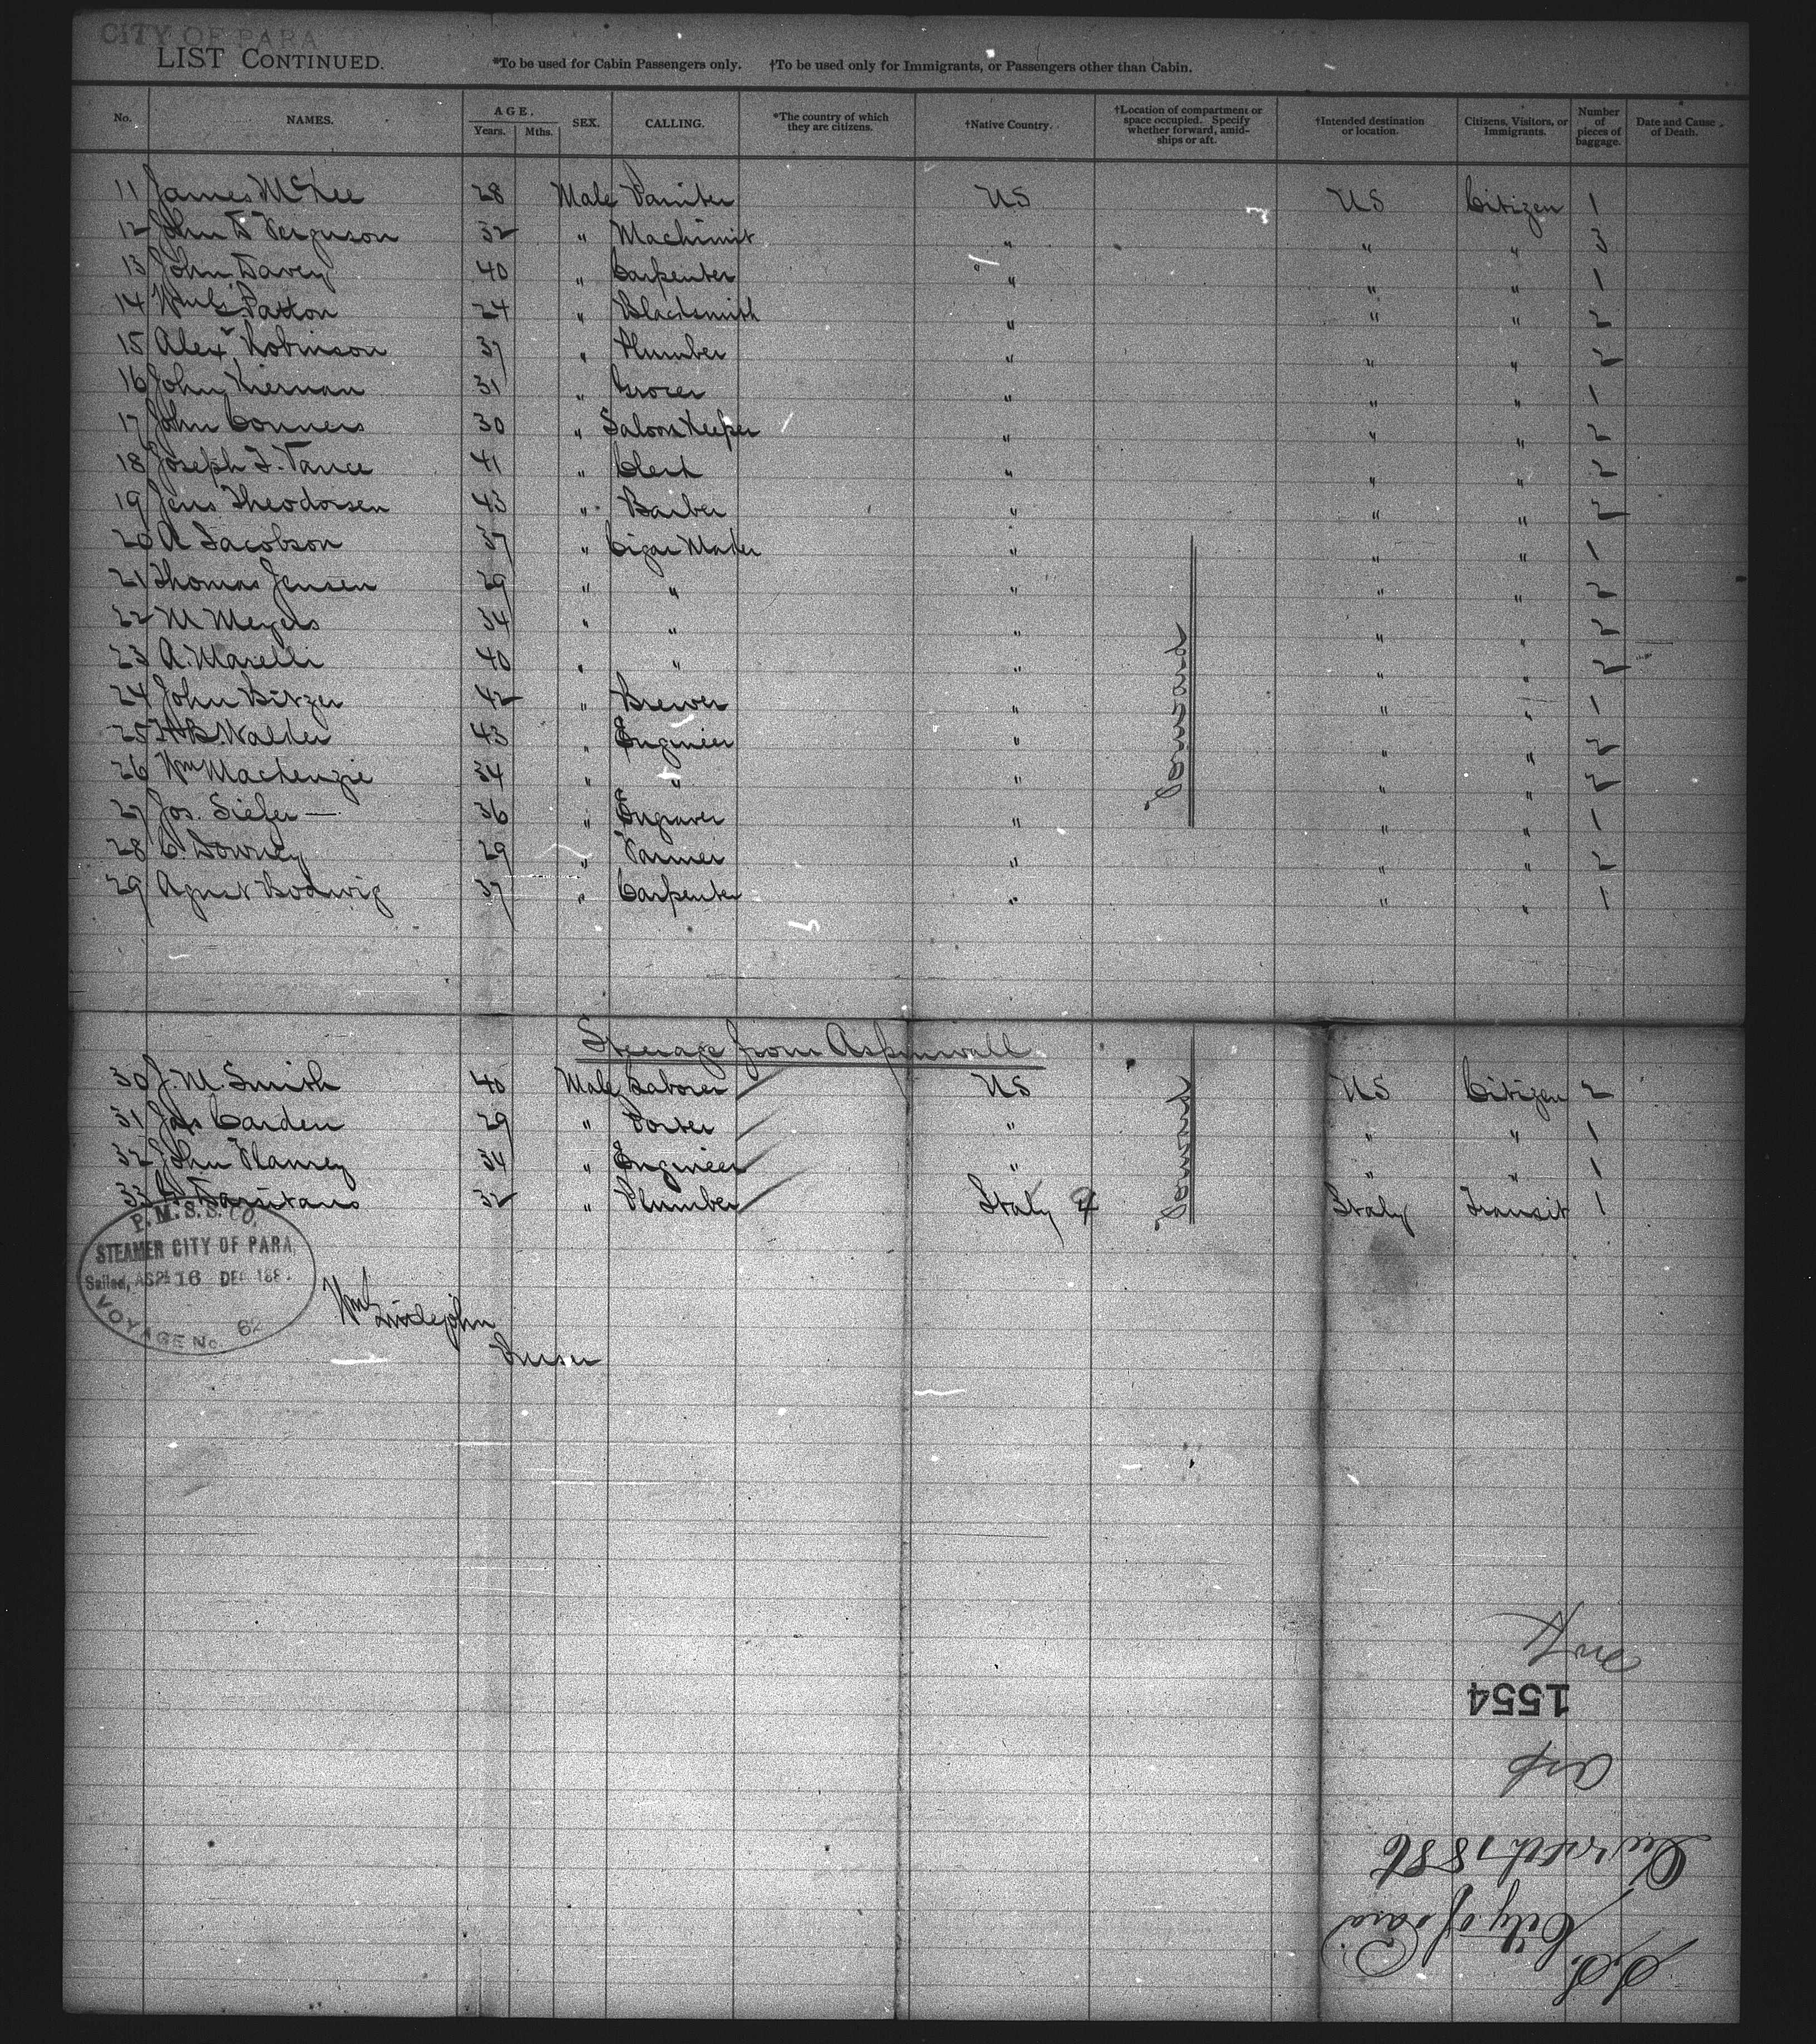 CITY OF PARA
LIST CONTINUED. *To be used for Cabin Passengers only. †To be used only for Immigrants, or Passengers other than Cabin.
No. NAMES. AGE. Years. Mths. SEX. CALLING. *The country of which they are citizens. †Native Country. †Location of compartment or space occupied. Specify whether forward, amid-ships or aft. †Intended destination or location. Citizens, Visitors, or Immigrants. Number of pieces of baggage. Date and Cause of Death.
11 James McKee 28 Male US US Citizen 1
12 John D Ferguson 32 " Machinist " " " 3
13 John Davey 40 " Carpenter " " " 1
14 Patton 24 " Blacksmith " " " 2
15 Alexr Robinson 37 " Plumber " " " 2
16 John Kiernan 31 " Grocer " " " 1
17 John Conners 30 " Saloon Keeper " " " 2
18 Joseph T. Vance 41 " Clerk " " " 2
19 Jens Theodorsen 43 " Barber " " " 2
20 A Jacobson 37 " Cigar Maker " " " 1
21 Thomas Jensen 29 " " " " " 2
22 M Meyers 34 " " " " " 2
23 A. Marelli 40 " " " " " 2
24 John Bitzer 42 " Brewer " " " 1
25 Walder 43 " Engineer " " " 2
26 Wm Mackenzie 34 " " " " " 2
27 Jos. Siefer — 36 " Engraver " " " 1
28 C. Downey 29 " Farmer " " " 2
29 Agust Bodwig 37 " Carpenter " " " 1
Forward
Steerage from Aspinwall
30 J. M. Smith 40 Male Laborer US US Citizen 2
31 Jas Carden 29 " Porter " " " 1
32 John Flamey 34 " Engineer " " " 1
33 32 " Plumber Italy Italy Transit 1
Forward
P. M. S. S. CO.
STEAMER CITY OF PARA,
Sailed, ASP'L 16 DEC 188
VOYAGE No. 62
Wm Littlejohn
Purser
S.S. City of Para
1886
Asp
1554